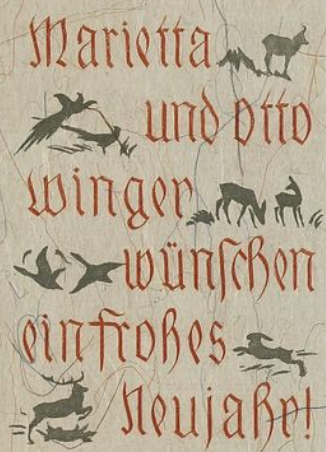 Marietta
und Otto
Winger
wünschen
ein frohes
Neujahr!